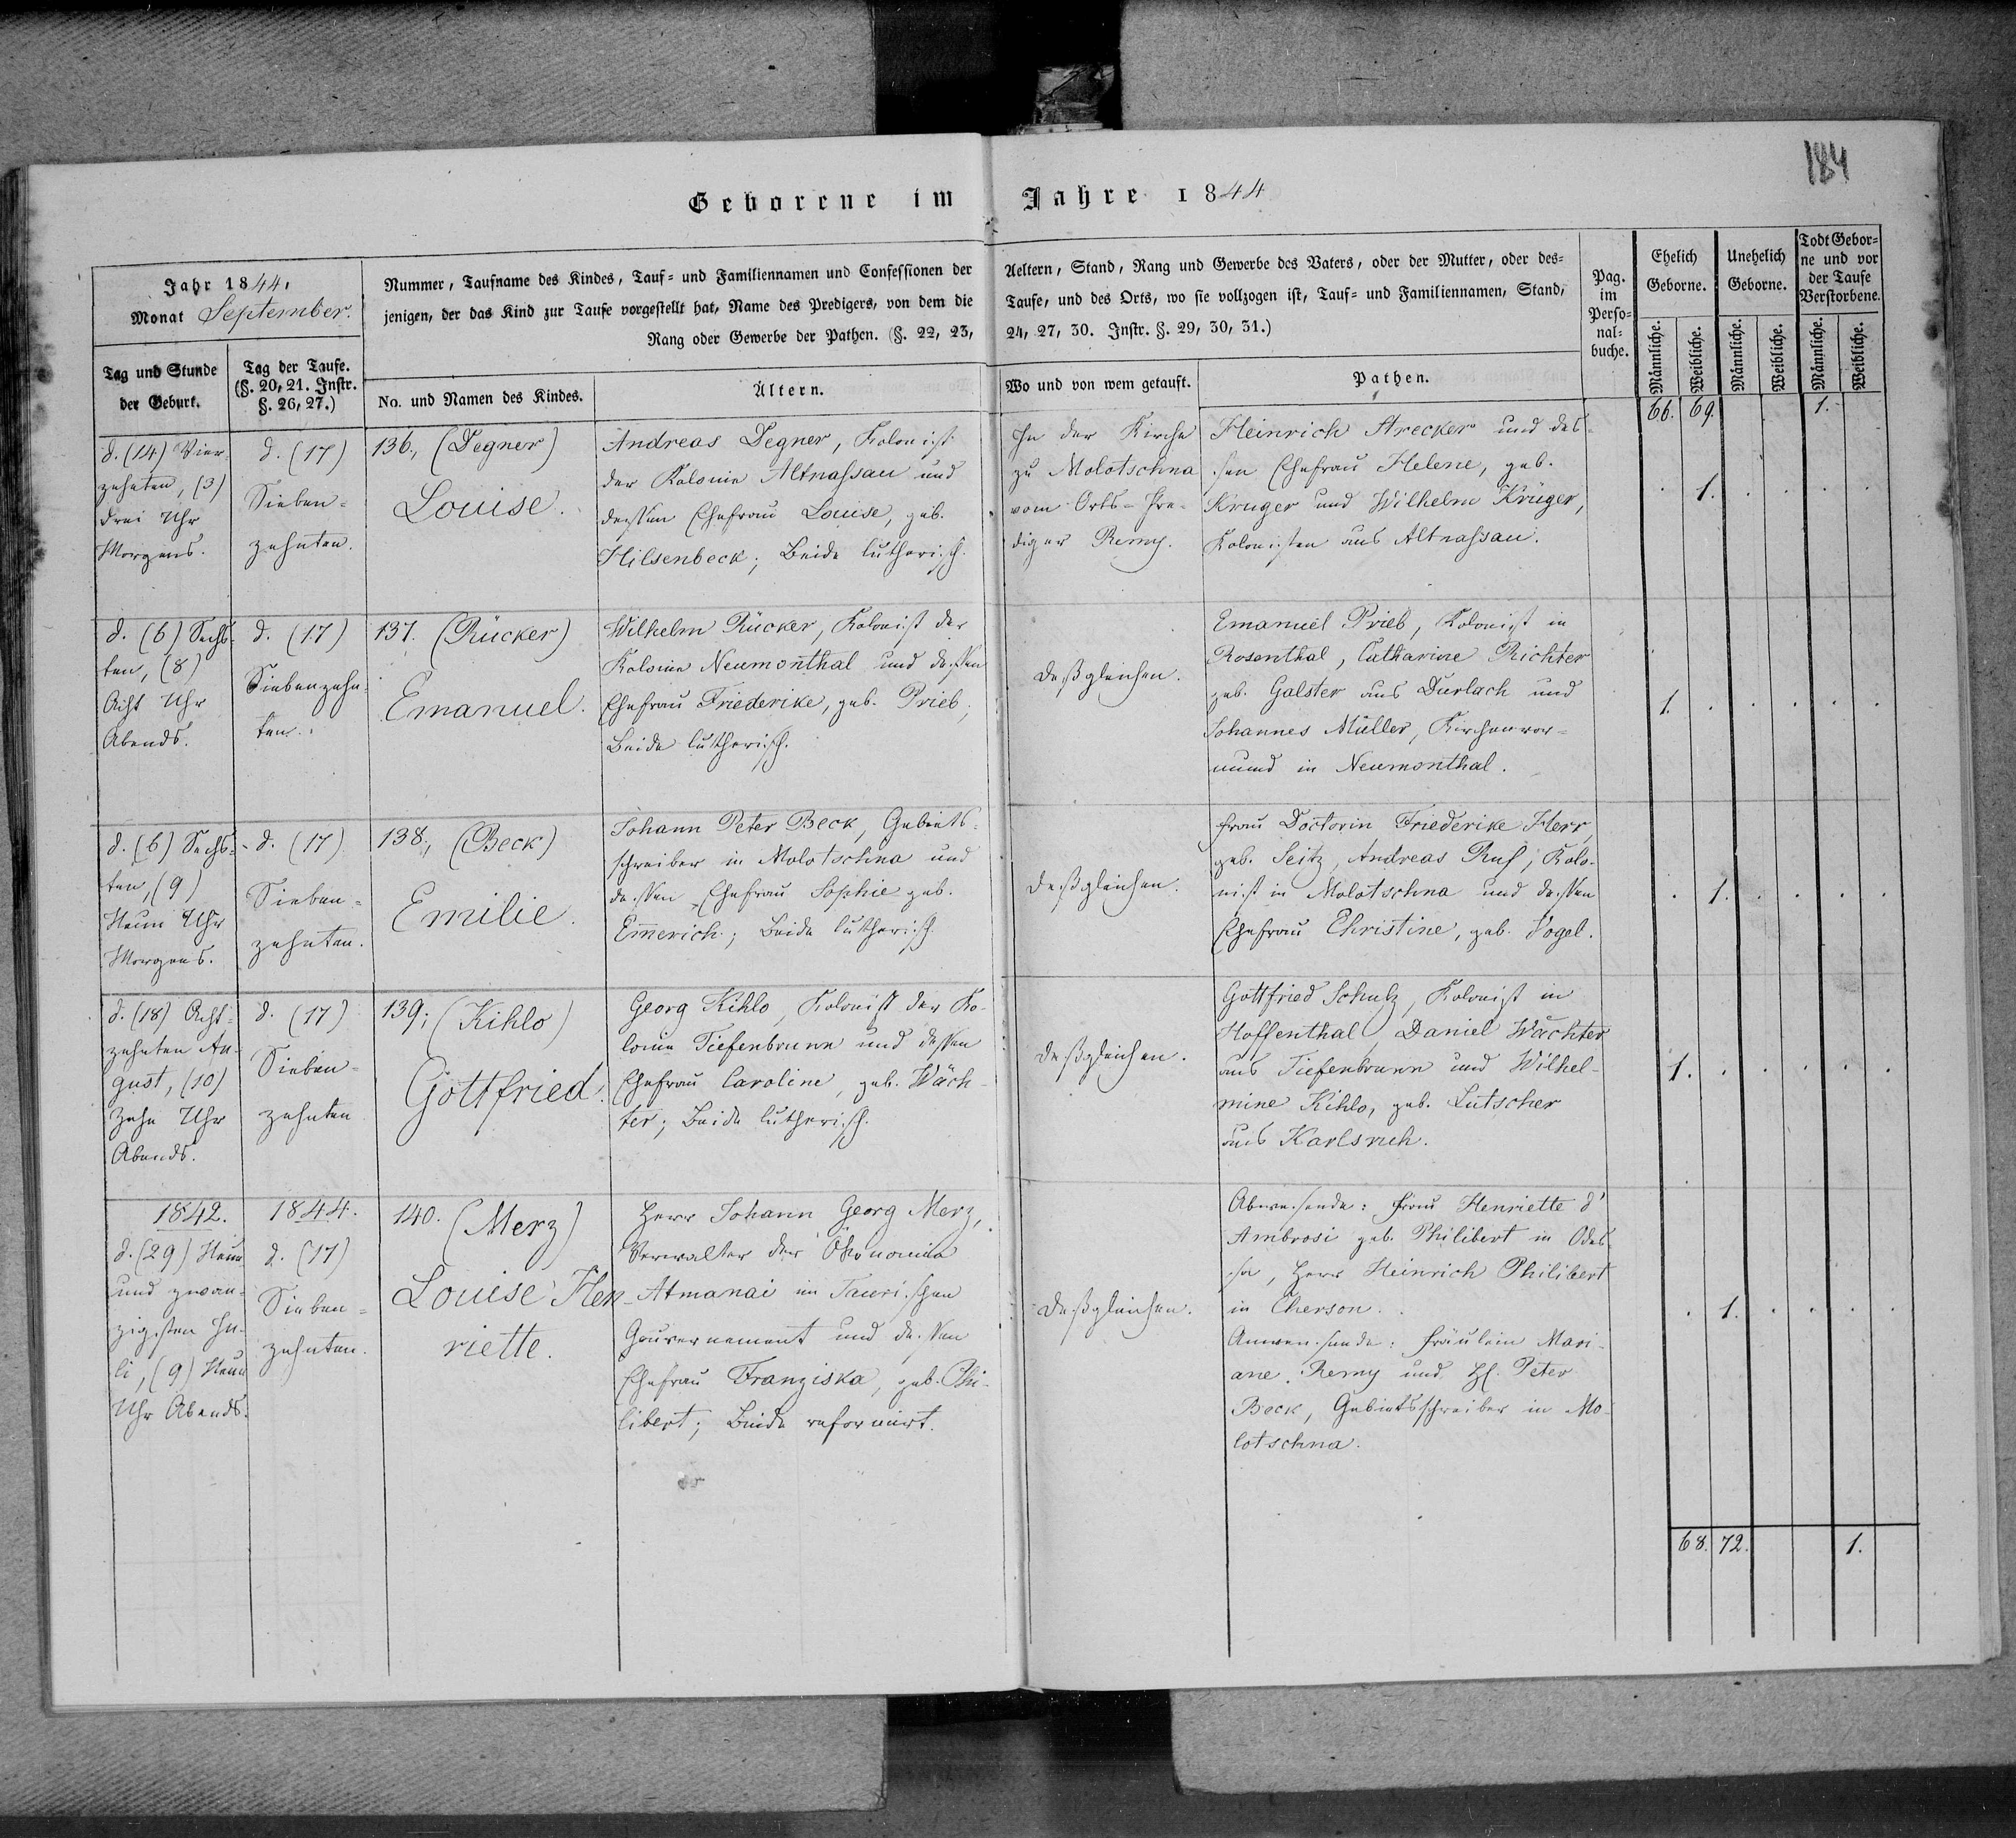 184
Geborene im Jahre 1844
Jahr 1844,
Monat September.
Tag und Stunde
der Geburt.
Tag der Taufe.
(§. 20, 21. Instr.
§. 26, 27.)
Nummer, Taufname des Kindes, Tauf= und Familiennamen und Confessionen der
jenigen, der das Kind zur Taufe vorgestellt hat, Name des Predigers, von dem die
Rang oder Gewerbe der Pathen. (§. 22, 23,
No. und Namen des Kindes.
Ältern.
Aeltern, Stand, Rang und Gewerbe des Vaters, oder der Mutter, oder des=
Taufe, und des Orts, wo sie vollzogen ist, Tauf= und Familiennamen, Stand,
24, 27, 30. Instr. §. 29, 30, 31.)
Wo und von wem getauft.
Pathen.
Pag.
im
Perso=
nal=
buche.
Ehelich
Geborne.
Unehelich
Geborne.
Todt Gebor=
ne und vor
der Taufe
Verstorbene.
Männliche.
Weibliche.
Männliche.
Weibliche.
Männliche.
Weibliche.
66. 69. 1.
d. (14) Vier
zehnten, (3)
drei Uhr
Morgens.
d. (17)
Sieben=
zehnten.
136., (Degner)
Louise.
Andreas Degner, Kolonist
der Kolonie Altnassau und
dessen Ehefrau Louise, geb.
Hilsenbeck; Beide lutherisch.
In der Kirche
zu Molotschna
vom Orts=Pre=
diger Remy.
Heinrich Strecker und des=
sen Ehefrau Helene, geb.
Kruger und Wilhelm Krüger,
Kolonisten aus Altnassau.
1.
d. (6) Sechs=
ten, (8)
Acht Uhr
Abends.
d. (17)
Siebenzehn=
ten.
137. (Rücker)
Emanuel.
Wilhelm Rücker, Kolonist der
Kolonie Neumonthal und dessen
Ehefrau Friederike, geb. Prieb;
Beide lutherisch.
deßgleichen.
Emanuel Prieb, Kolonist in
Rosenthal, Catharine Richter
geb. Galster aus Durlach und
Johannes Müller, Kirchenvor=
mund in Neumonthal.
1.
d. (6) Sechs=
ten, (9)
Neun Uhr
Morgens.
d. (17)
Sieben=
zehnten.
138., (Beck)
Emilie.
Johann Peter Beck, Gebiets=
schreiber in Molotschna und
dessen Ehefrau Sophie geb.
Em̅erich; Beide lutherisch.
deßgleichen.
Frau Doctorin Friederike Herr,
geb. Seitz, Andreas Ruf, Kolo-
nist in Molotschna und dessen
Ehefrau Christine, geb. Vogel.
1.
d. (18) Acht=
zehnten Au=
gust, (10)
Zehn Uhr
Abends.
d. (17)
Sieben=
zehnten
139; (Kihlo)
Gottfried.
Georg Kihlo, Kolonist der Ko-
lonie Tiefenbrunn und dessen
Ehefrau Caroline, geb. Wäch-
ter; Beide lutherisch.
deßgleichen.
Gottfried Schulz, Kolonist in
Hoffenthal, Daniel Wächter
aus Tiefenbrunn und Wilhel-
mine Kihlo, geb. Lutscher
aus Karlsruh.
1.
1842.
d. (29) Neun
und zwan=
zigsten Ju=
li, (9) Neun
Uhr Abends.
1844.
d. (17)
Sieben=
zehnten.
140. (Merz)
Louise Hen-
riette.
Herr Johann Georg Merz,
Verwalter der Ökonomie
Atmanai im Taurischen
Gouvernement und dessen
Ehefrau Franziska, geb. Phi-
libert; Beide reformirt.
deßgleichen.
Abwesende: Frau Henriette d'
Ambrosi geb. Philibert in Odes-
sa, Herr Heinrich Philibert
in Cherson.
Anwesende: Fräulein Mari-
ane Remy und H. Peter
Beck, Gebietsschreiber in Mo-
lotschna.
1.
68. 72. 1.